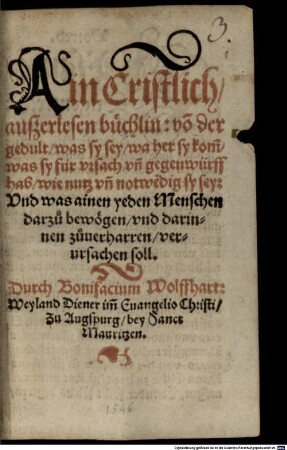 3.
Ain Cristlich/
außerlesen büchlin: võ der
gedult/ was sy sey/ wa her sy kom̃/
was sy für vrsach vñ gegenwürff
hab/ wie nutz vñ notwẽdig sy sey:
Vnd was ainen yeden Menschen
darzů bewögen/ vnd darin-
nen zůuerharren/ ver-
ursachen soll.
Durch Bonifacium Wolffhart:
Weyland Diener im̃ Euangelio Christi/
Zu Augspurg/ bey Sanct
Mauritzen.
1546